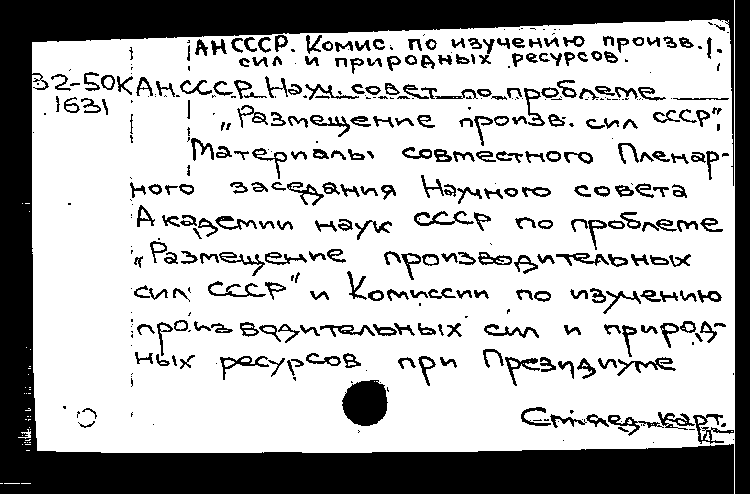 АН СССР. Комис. по изучению произв. 1.
сил и природных ресурсов.
В2-50К АН СССР. Науч. совет по проблеме
1631
„Размещение произв. сил СССР",
Материалы совместного Пленар-
ного заседания Научного совета
Академии наук СССР по проблеме
„Размещение производительных
сил СССР" и Комиссии по изучению
производительных сил и природ-
ных ресурсов при Президиуме
См. след. карт.